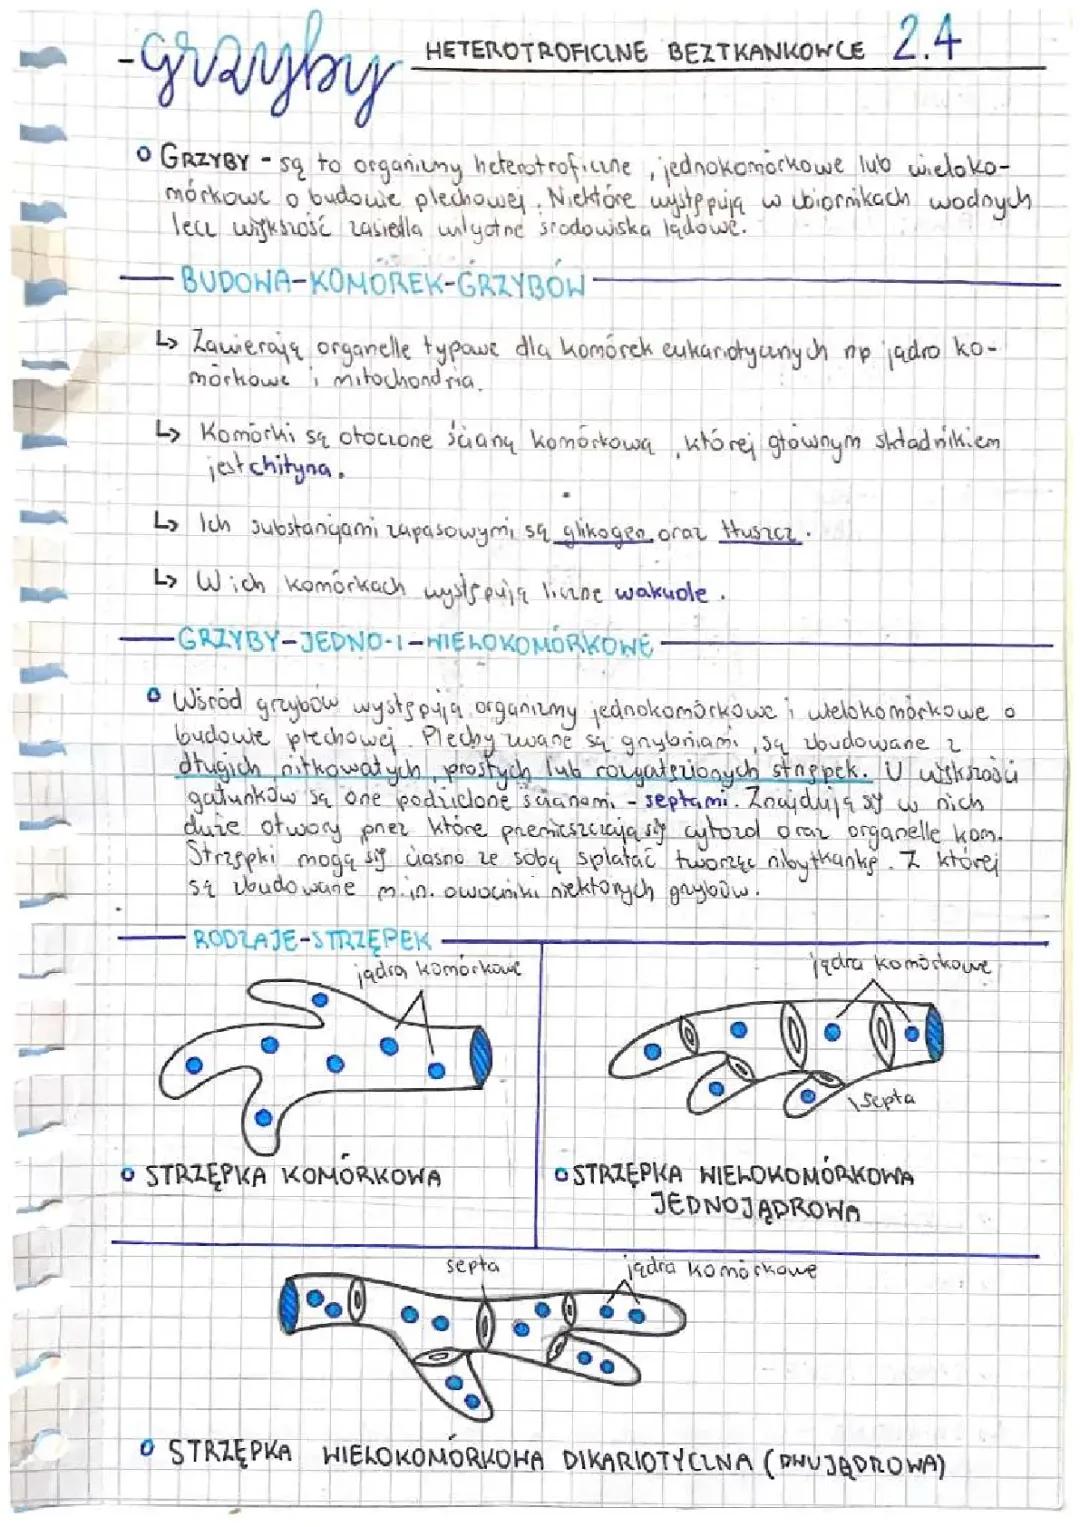 -grzyby HETEROTROFICZNE BEZTKANKOWCE 2.4
GRZYBY - są to organizmy heterotroficzne, jednokomórkowe lub wieloko-
mórkowe o budowie plechowej. Niektóre występują w zbiornikach wodnych
lecz większość zasiedla wilgotne środowiska lądowe.
BUDOWA-KOMÓREK-GRZYBÓW
↳ Zawierają organelle typowe dla komórek eukariotycznych np jądro ko-
mórkowe i mitochondria.
↳ Komórki są otoczone ścianą komórkową, której głównym składnikiem
jest chityna.
↳ Ich substancjami zapasowymi są glikogen oraz tłuszcz.
↳ W ich komórkach występują liczne wakuole.
GRZYBY-JEDNO-I-WIELOKOMÓRKOWE
Wśród grzybów występują organizmy jednokomórkowe i wielokomórkowe o
budowie plechowej. Plechy zwane są grzybniami, są zbudowane z
długich nitkowatych, prostych lub rozgałęzionych strzępek. U większości
gatunków są one podzielone ścianami - septami. Znajdują sy w nich
duże otwory przez które przemieszczają się cytozol oraz organelle kom.
Strzępki mogą się ciasno ze sobą splatać tworząc nibytkankę. Z której
są zbudowane m.in. owocniki niektórych grzybów.
RODZAJE-STRZĘPEK
jądra komórkowe
jądra komórkowe
septa
STRZĘPKA KOMÓRKOWA
STRZĘPKA WIELOKOMÓRKOWA
JEDNOJĄDROWA
septa
jądra komórkowe
STRZĘPKA WIELOKOMÓRKOWA DIKARIOTYCZNA (DWUJĄDROWA)